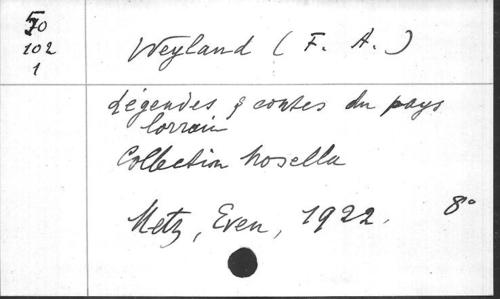 50
102
1
Weyland (F. A.)
Légendes & contes du pays
lorrain
Collection Mosella
Metz, Even, 1922. 8°